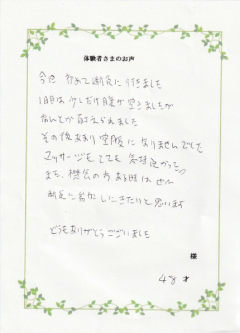 体験者さまのお声
今回 初めて断食に行きました
1日目は少しだけ腹が空きましたが
なんとか耐えられました
その後あまり空腹になりませんでした
マッサージもとても気持良かった
また、機会の有る時は ぜひ
断食に参加しにきたいと思います
どうもありがとうございました
様
48才